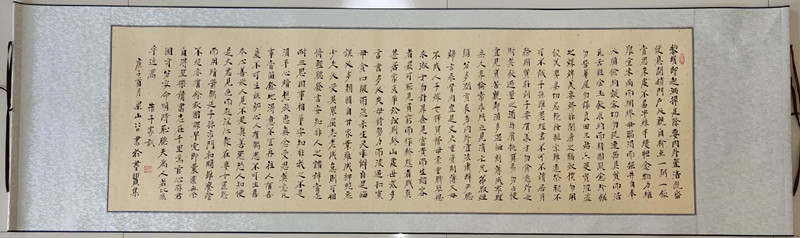 黎明即起洒掃庭除要內外整潔既昏
便息關鎖門戶必親自檢點一粥一飯
當思來處不易半絲半縷恒念物力維
艱宜未雨而綢繆毋臨渴而掘井自奉
必須儉約宴客切勿流連器具質而潔
瓦缶勝金玉飲食約而精園蔬愈珍饈
勿營華屋勿謀良田三姑六婆實淫盜
之媒婢美妾嬌非閨房之福奴僕勿用
俊美妻妾切忌艷妝祖宗雖遠祭祀不
可不誠子孫雖愚經書不可不讀居身
務期質樸訓子要有義方勿貪意外之
財勿飲過量之酒與肩挑貿易勿佔便
宜見貧苦親鄰須多溫恤刻薄成家理
無久享倫常乖舛立見消亡兄弟叔侄
須分多潤寡長幼內外宜法肅辭嚴聽
婦言乖骨肉豈是丈夫重資財薄父母
不成人子嫁女擇佳婿毋索重聘娶媳
求淑女勿計厚奩見富貴而生諂容
者最可恥見貧窮而作驕態者賤莫
甚居家戒爭訟訟則終凶處世戒多
言言多必失毋恃勢力而凌逼孤寡
毋貪口腹而恣殺生乖僻自是悔
誤必多頹惰自甘家業難成狎昵惡
少久必受其累屈志老成急則可相
依輕聽發言安知非人之譖訴當忍
耐三思因事相爭安知非我之不是
須平心暗想施惠無念受恩莫忘凡
事當留餘地得意不宜再往人有喜
慶不可生妒忌心人有禍患不可生喜
幸心善欲人見不是真善惡恐人知便
是大惡見色而起淫心報在妻女匿怨
而用暗箭禍延子孫家門和順雖饔飧
不繼亦有餘歡國課早完即囊橐無餘
自得至樂讀書志在聖賢為官心存君
國守分安命順時聽天為人若此庶
乎近焉 朱子家訓
庚子